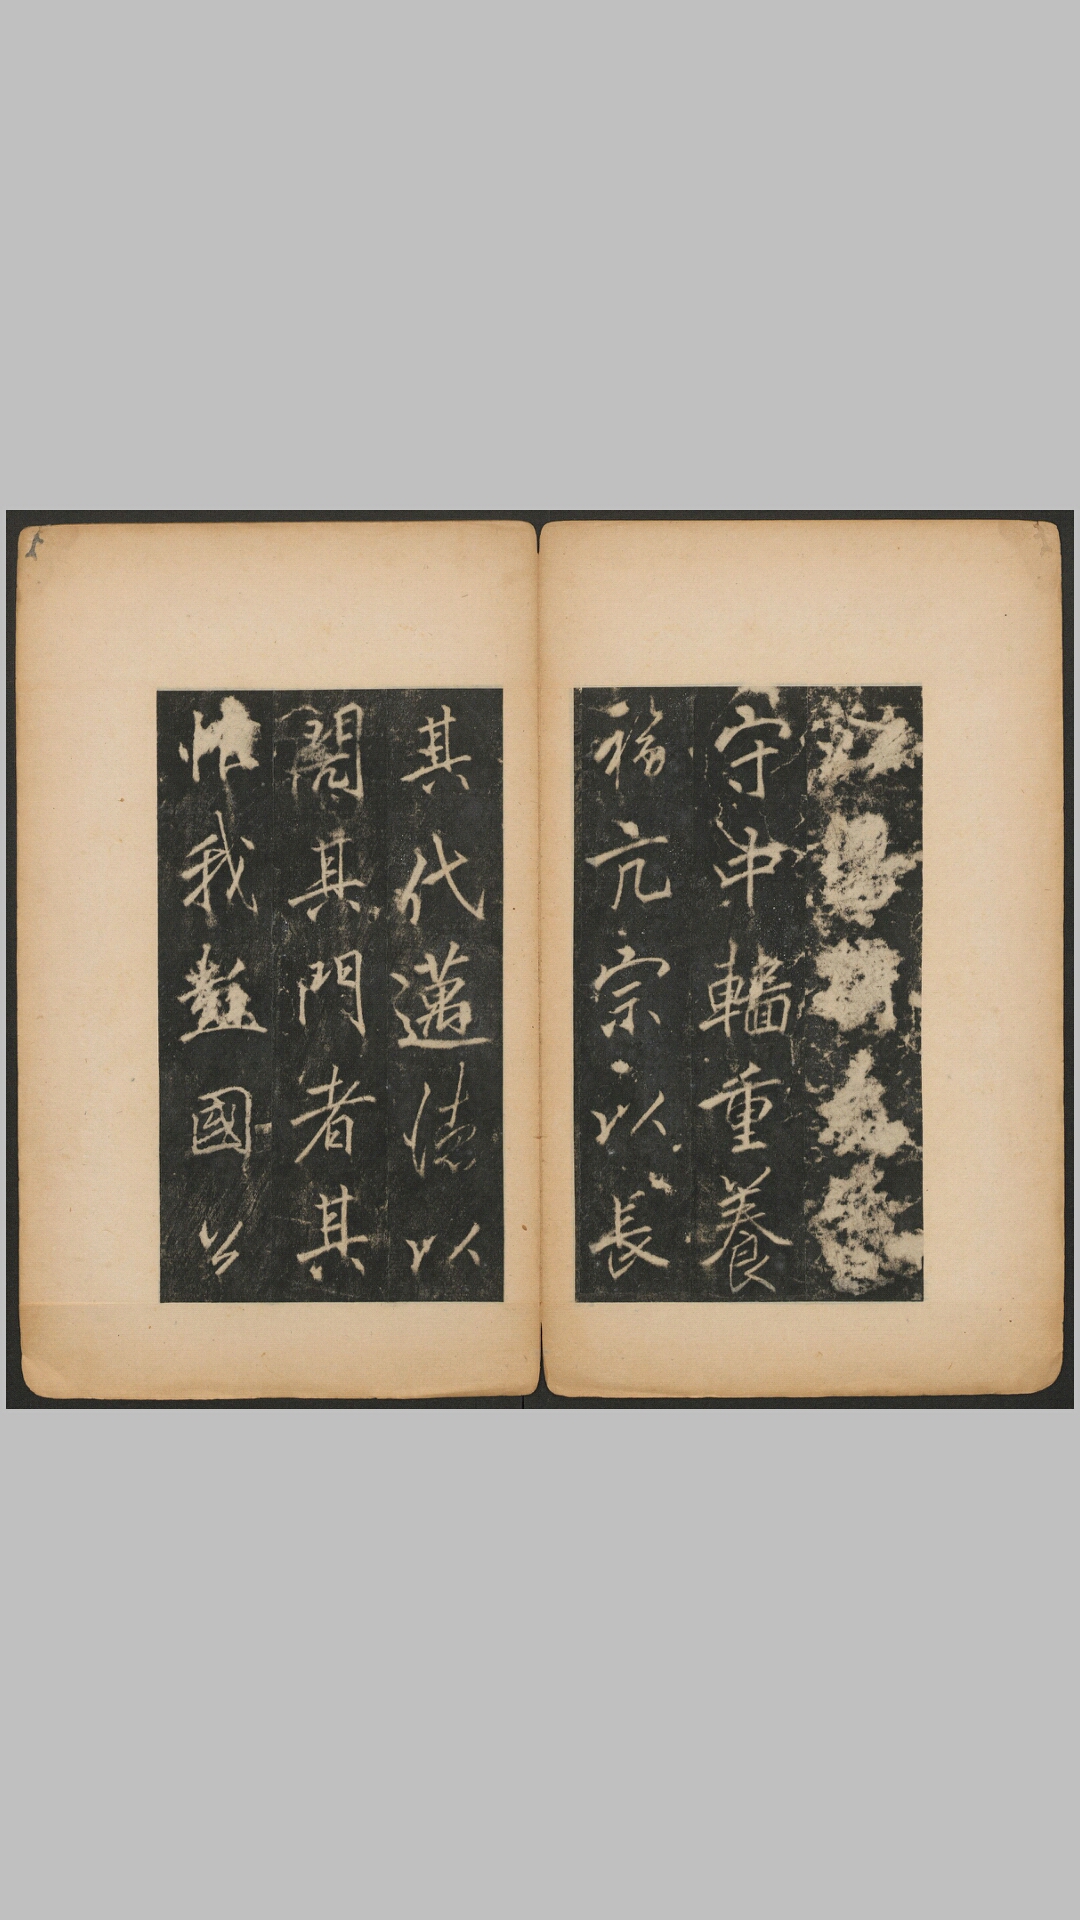 守中輜重養
福亢宗以長
其代邁德以
閎其門者其
惟我彭國公